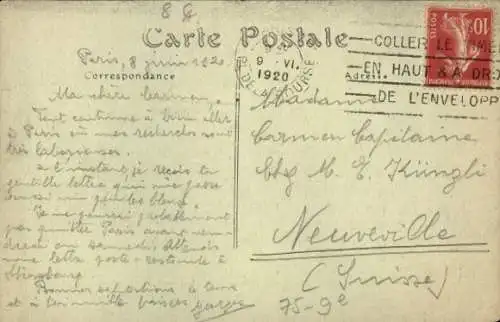 8 G
Carte Postale
Paris, 8 juin 1920.
Correspondance
Ma chère Carmen,
Tout continue à bien aller
à Paris où mes recherches sont
très laborieuses.
A l'instant, je reçois ta
gentille lettre qui me
aussi
Je ne pourrai probablement
pas quitter Paris avant
dredi ou samedi.
une lettre poste-restante à
Strasbourg
Bonnes à tous
et à toi mille baisers Georges
9 VI
1920
DE LA BOURSE
COLLER LE
EN HAUT & A DRO
DE L'ENVELOPP
POSTES
10
Adresse
Madame
Carmen Capitaine
Chez M. E. Künzli
Neuveville
(Suisse)
75-9e